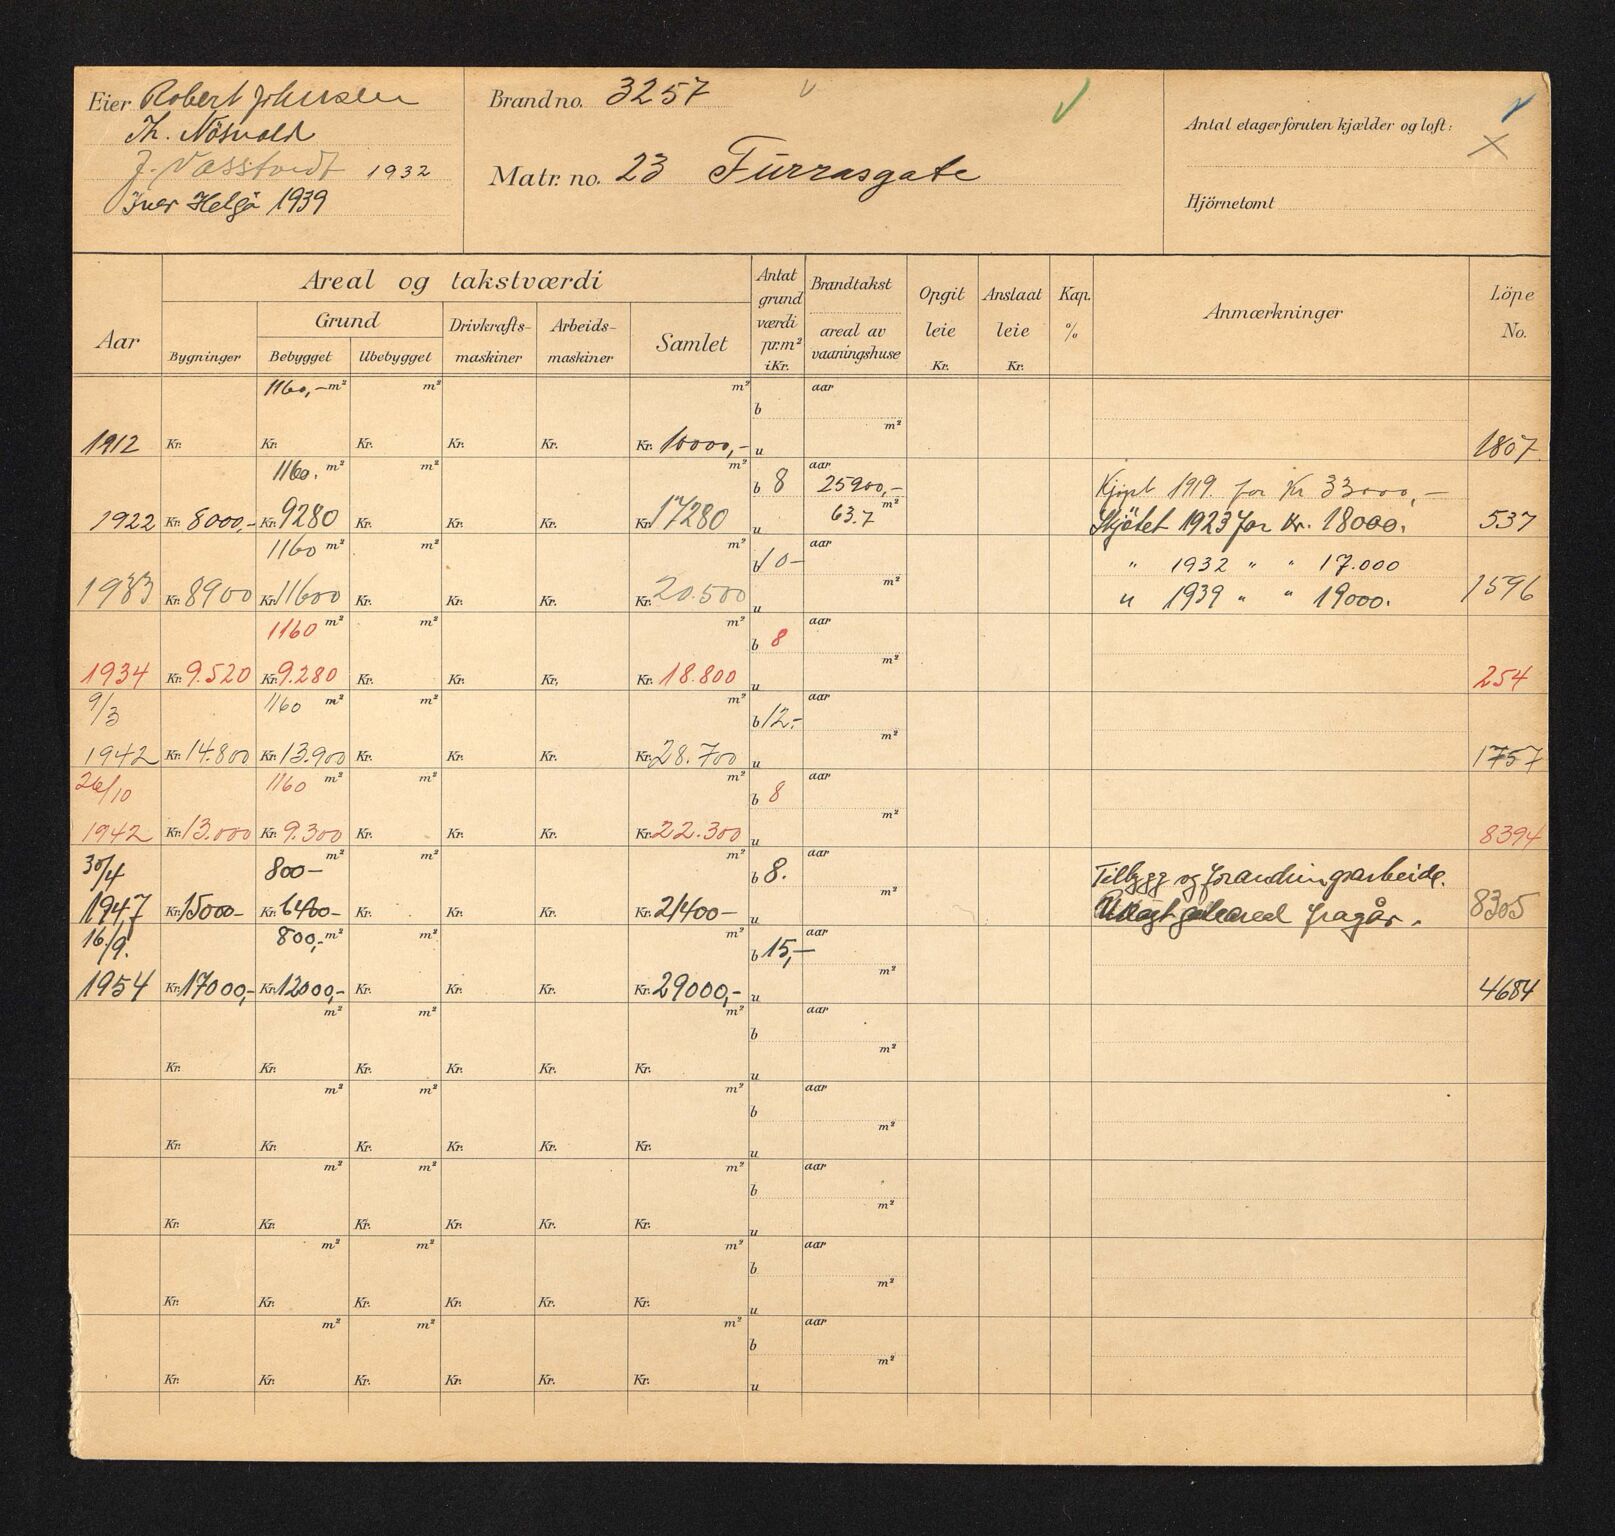 Eier Robert Johnsen
Th. Nösvold
J. Vasstvedt 1932
Iver Helgö 1939
Brand no. 3257
Matr. no. 23 Furrasgate
Antal etager foruten kjælder og loft:
Hjörnetomt
Aar
Areal og takstværdi
Bygninger
Grund
Bebygget
Ubebygget
Drivkrafts-maskiner
Arbeids-maskiner
Samlet
Antat grund værdi pr. m² i Kr.
Brandtakst
areal av vaaningshuse
Opgit leie Kr.
Anslaat leie Kr.
Kap. %
Anmærkninger
Löpe No.
1160,- m² m² m² aar
b
m²
1912 Kr. Kr. Kr. Kr. Kr. Kr. 10000,- u 1807
1160. m² m² m² aar
b 8 25900,- Kjöpt 1919. for Kr 33000,-
63.7 m²
1922 Kr. 8000,- Kr. 9280 Kr. Kr. Kr. Kr. 17280 u Skjötet 1923 for Kr. 18000. 537
1160 m² m² m² aar
b 10- " 1932 " " 17.000
m²
1933 Kr. 8900 Kr. 11600 Kr. Kr. Kr. Kr. 20.500 u " 1939 " " 19000. 1596
1160 m² m² m² aar
b 8
m²
1934 Kr. 9.520 Kr. 9.280 Kr. Kr. Kr. Kr. 18.800 u 254
9/3 1160 m² m² m² aar
b 12.-
m²
1942 Kr. 14.800 Kr. 13.900 Kr. Kr. Kr. Kr. 28.700 u 1757
26/10 1160 m² m² m² aar
b 8
m²
1942 Kr. 13.000 Kr. 9.300 Kr. Kr. Kr. Kr. 22.300 u 8394
30/4 800- m² m² m² aar
b 8. Tilbygg og forandringsarbeide.
m²
1947 Kr. 15000- Kr. 6400- Kr. Kr. Kr. Kr. 21400- u fragår. 8305
16/9. 800,- m² m² m² aar
b 15,-
m²
1954 Kr. 17000,- Kr. 12000,- Kr. Kr. Kr. Kr. 29000,- u 4684
m² m² m² aar
b
m²
Kr. Kr. Kr. Kr. Kr. Kr. u
m² m² m² aar
b
m²
Kr. Kr. Kr. Kr. Kr. Kr. u
m² m² m² aar
b
m²
Kr. Kr. Kr. Kr. Kr. Kr. u
m² m² m² aar
b
m²
Kr. Kr. Kr. Kr. Kr. Kr. u
m² m² m² aar
b
m²
Kr. Kr. Kr. Kr. Kr. Kr. u